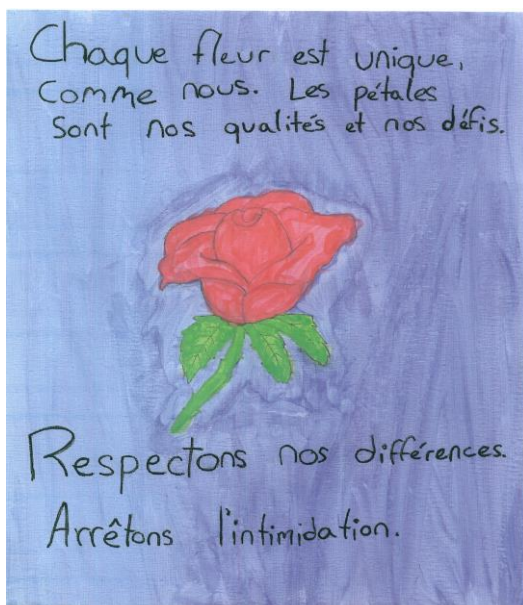 Chaque fleur est unique,
Comme nous. Les pétales
Sont nos qualités et nos défis.
Respectons nos différences.
Arrêtons l'intimidation.